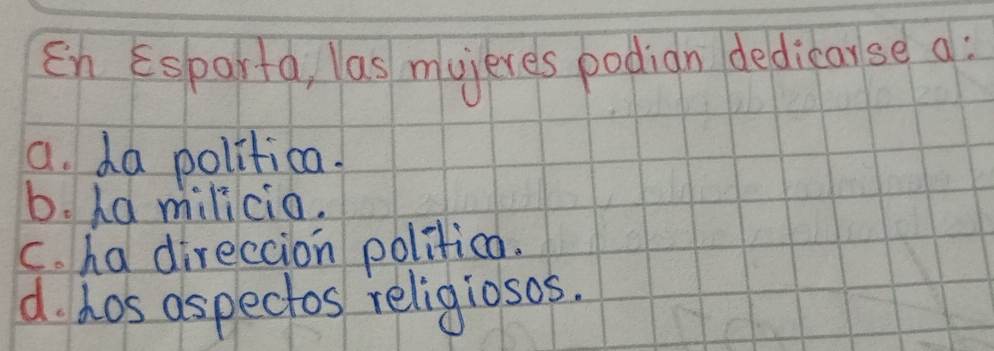 En Esparta, las mujeres podian dedicarse a:
a. La política.
b. La milicia.
c. La dirección política.
d. Los aspectos religiosos.